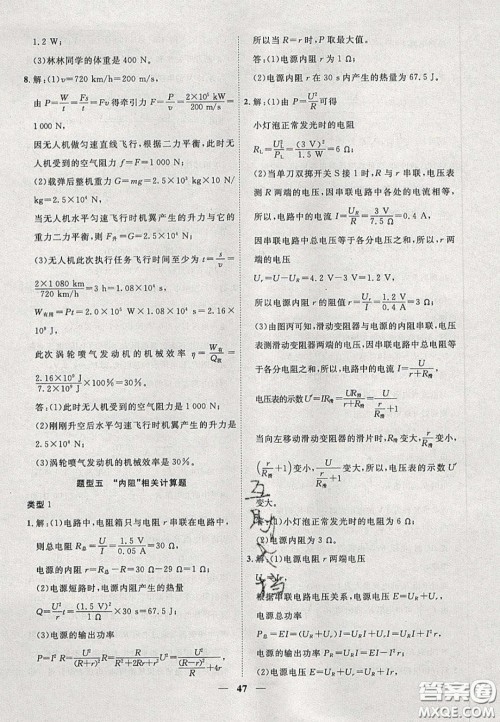 1.2 W;
(3)林林同学的体重是 400 N。
8.解:(1)v=720 km/h=200 m/s,
由 P=W/t=Fs/t=Fv 得牵引力 F=P/v=2×10⁵ kW/200 m/s=
1 000 N,
因无人机做匀速直线飞行,根据二力平衡,此时无人机受到的空气阻力 f=F=1 000 N;
(2)载弹后整机重力 G=mg=2.5×10⁴ N,
当无人机水平匀速飞行时机翼产生的升力与它的重力二力平衡,则 F升=G=2.5×10⁴ N;
(3)无人机此次执行任务飞行时间至少为 t=s/v=
2×1 080 km/720 km/h=3 h=1.08×10⁴ s,
W有用=Pt=2.16×10⁹ J,
此次涡轮喷气发动机的机械效率 η=W有用/Q放=
2.16×10⁹ J/7.2×10⁹ J×100%=30%。
答:(1)此时无人机受到的空气阻力为 1 000 N;
(2)刚刚升空后水平匀速飞行时机翼产生的升力是 2.5×10⁴ N;
(3)涡轮喷气发动机的机械效率是 30%。
题型五 “内阻”相关计算题
类型 1
1.解:(1)电路中,电阻箱只与电阻 r 串联在电路中,
则总电阻 R总=U/I=1.5 V/0.05 A=30 Ω,
电源内阻 r=R总-R=30 Ω-29 Ω=1 Ω;
(2)电源短路时,电源内阻产生的热量
Q=U²/r t=(1.5 V)²/1 Ω×30 s=67.5 J;
(3)电源的输出功率
P=I²R=U²/(R+r)² R=U²/((R-r)²+4Rr)/R=U²/(R-r)²/R+4r,
所以当 R=r 时,P 取最大值。
答:(1)电源内阻 r 为 1 Ω;
(2)电源内阻 30 s 内产生的热量为 67.5 J。
2.解:(1)由 P=U²/R 可得
小灯泡正常发光时的电阻
RL=UL²/PL=(3 V)²/1.5 W=6 Ω;
(2)当单刀双掷开关 S 接 1 时,R 与 r 串联,电压表测电阻 R 两端的电压,因串联电路中各处的电流相等,
所以,电路中的电流 I=U/R=3 V/7.5 Ω=0.4 A,
因串联电路中总电压等于各分电压之和,所以,r 两端的电压
Ur=U-UR=4.2 V-3 V=1.2 V,
所以,电源内阻的阻值 r=Ur/I=1.2 V/0.4 A=3 Ω;
(3)由图丙可知,滑动变阻器与电源的内阻串联,电压表测滑动变阻器两端的电压,因串联电路中总电压等于各分电压之和,所以,电路中的电流 I=U/r+R滑,
电压表的示数 U′=IR滑=UR滑/r+R滑=U/r/R滑+1
当向左移动滑动变阻器的滑片时,R滑变大,r/R滑变小,
(r/R滑+1)变小,U/r/R滑+1变大,因此,电压表的示数 U′
变大。
答:(1)小灯泡正常发光时的电阻为 6 Ω;
(2)电源内阻的阻值为 3 Ω。
3.解:(1)电源电阻 r 两端电压
根据串联电路电压关系,电源电压 E=UR+Ur=UR+Ir,
电源总功率
PE=EI=(UR+Ur)I=(UR+Ir)I=URI+I²r;
(2)根据串联电路电压关系,电源电压 E=UR+Ur=
47
答案圈
MXQE.COM